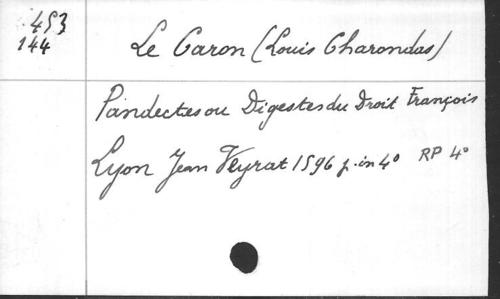 453
144
Le Caron (Louis Charondas)
Pandectes ou Digestes du Droit François
Lyon Jean Veyrat 1596 p. in 4° RP 4°